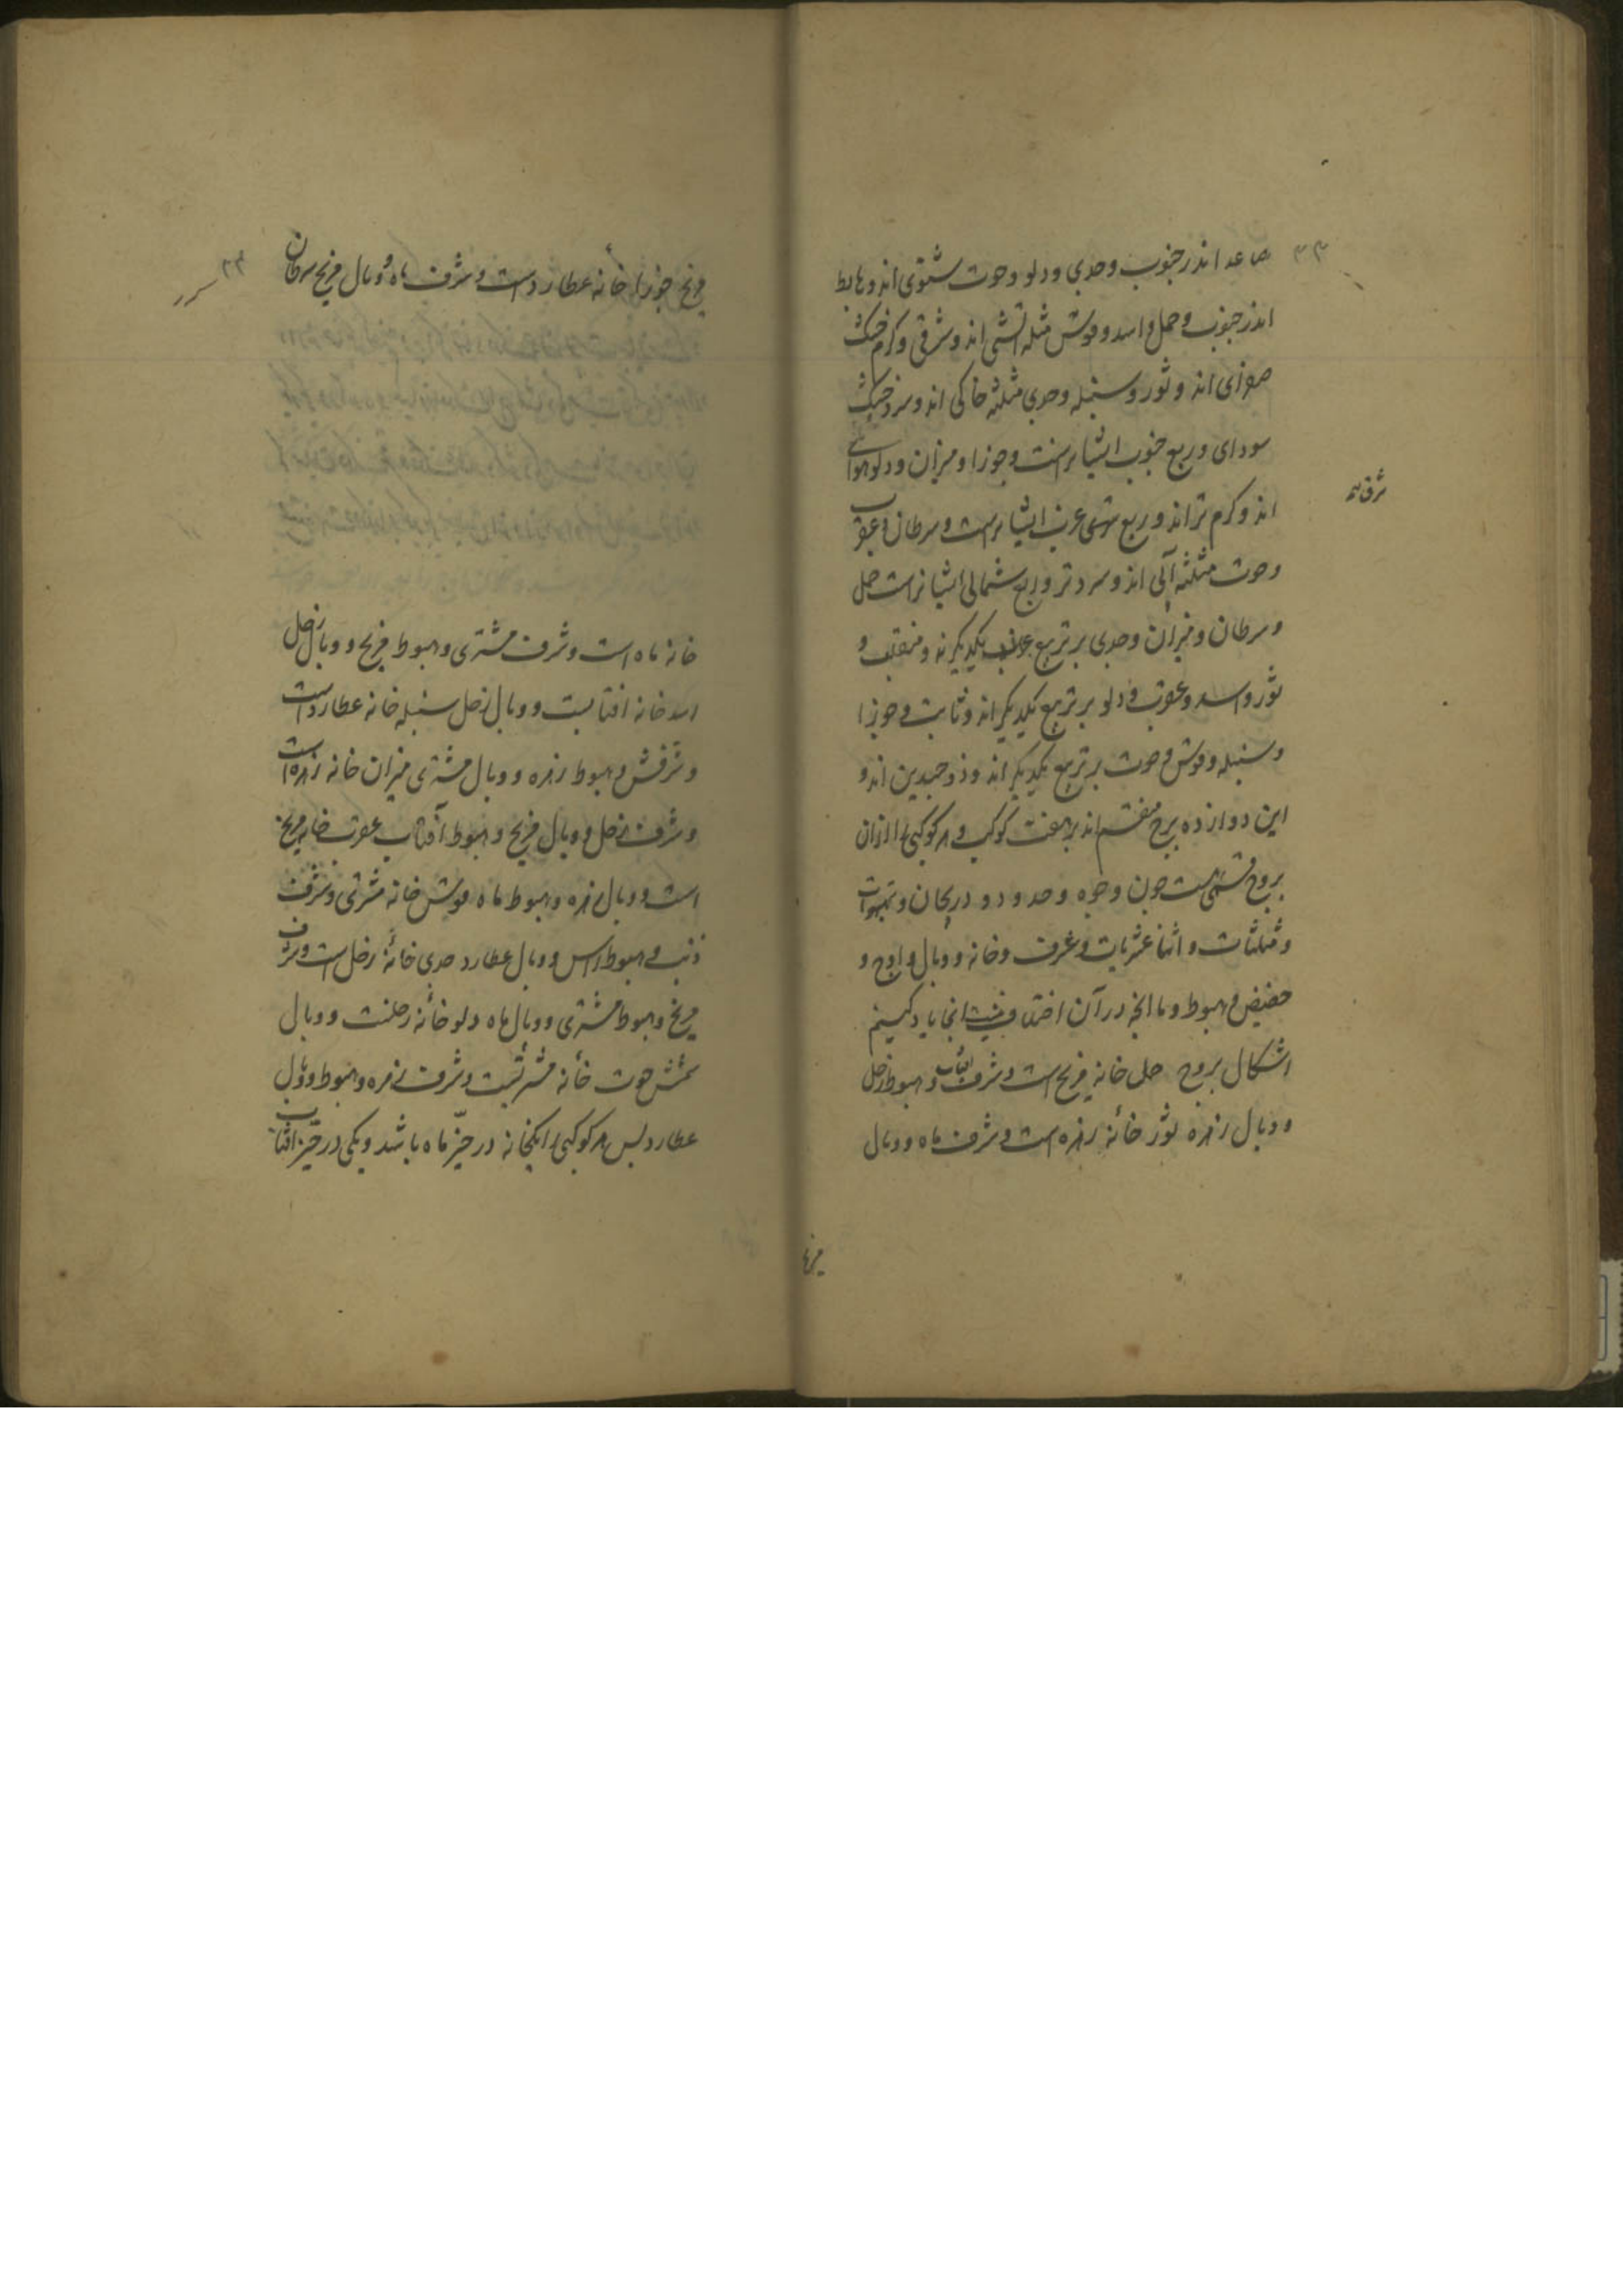 ۳۳
صاعد اندر جنوب و جدی و دلو و حوت شتوی اند و هابط
اندر جنوب و حمل و اسد و قوس مثلثه آتشی اند و شرقی و کرم خشک
صفرای اند و ثور و سنبله و جدی مثلثه خاکی اند و سرد و خشک
سودای و ربع جنوب ایشانراست و جوزا و میزان و دلو هوائی
اند و کرم تر اند و ربع غربی ایشانراست و سرطان و عقرب
و حوت مثلثه آبی اند و سرد تر و ربع شمالی ایشانراست حمل
و سرطان و میزان و جدی بر تربیع یکدیگرند و منقلب و
ثور و اسد و عقرب و دلو بر تربیع یکدیگر اند و ثابت و جوزا
و سنبله و قوس و حوت بر تربیع یکدیگر اند و ذو جسدین اند و
این دوازده برج منقسم اند بر هفت کوکب و هر کوکبی را ازان
بروج قسمی است چون وجوه و حدود و دریجان و نهبهرات
و مثلثات و اثنا عشریات و شرف و خانه و وبال و اوج و
حضیض و هبوط و ما آنچه در آن اختلاف نیست اینجا یاد کنیم
اشکال بروج حمل خانه مریخ است و شرف آفتاب و هبوط زحل
و وبال زهره ثور خانه زهره است و شرف ماه و وبال
مریخ
مریخ جوزا خانه عطارد است و شرف ماه و وبال مریخ سرطان
خانه ماه است و شرف مشتری و هبوط مریخ و وبال زحل
اسد خانه افتابست و وبال زحل سنبله خانه عطارد است
و شرفش و هبوط زهره و وبال مشتری میزان خانه زهره است
و شرف زحل و وبال مریخ و هبوط آفتاب عقرب خانه مریخ
است و وبال زهره و هبوط ماه قوس خانه مشتری و شرف
ذنب و هبوط راس و وبال عطارد جدی خانه زحل است و شرف
مریخ و هبوط مشتری و وبال ماه دلو خانه زحلست و وبال
شمس حوت خانه مشتریست و شرف زهره و هبوط و وبال
عطارد پس هر کوکبی را یکخانه در حیّز ماه باشد و یکی در حیّز افتاب